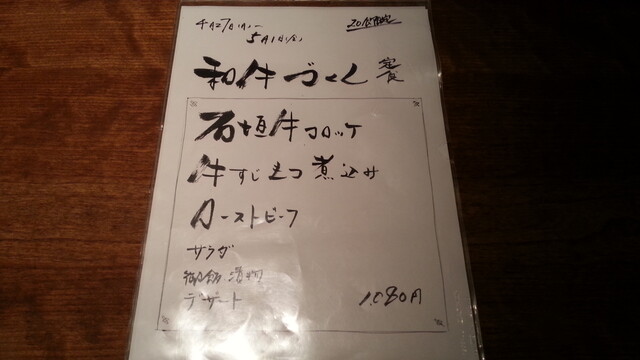 4月27日(月)～
5月1日(金)
20食限定
和牛づくし 定食
石垣牛コロッケ
牛すじもつ煮込み
ローストビーフ
サラダ
御飯 漬物
デザート
1,080円